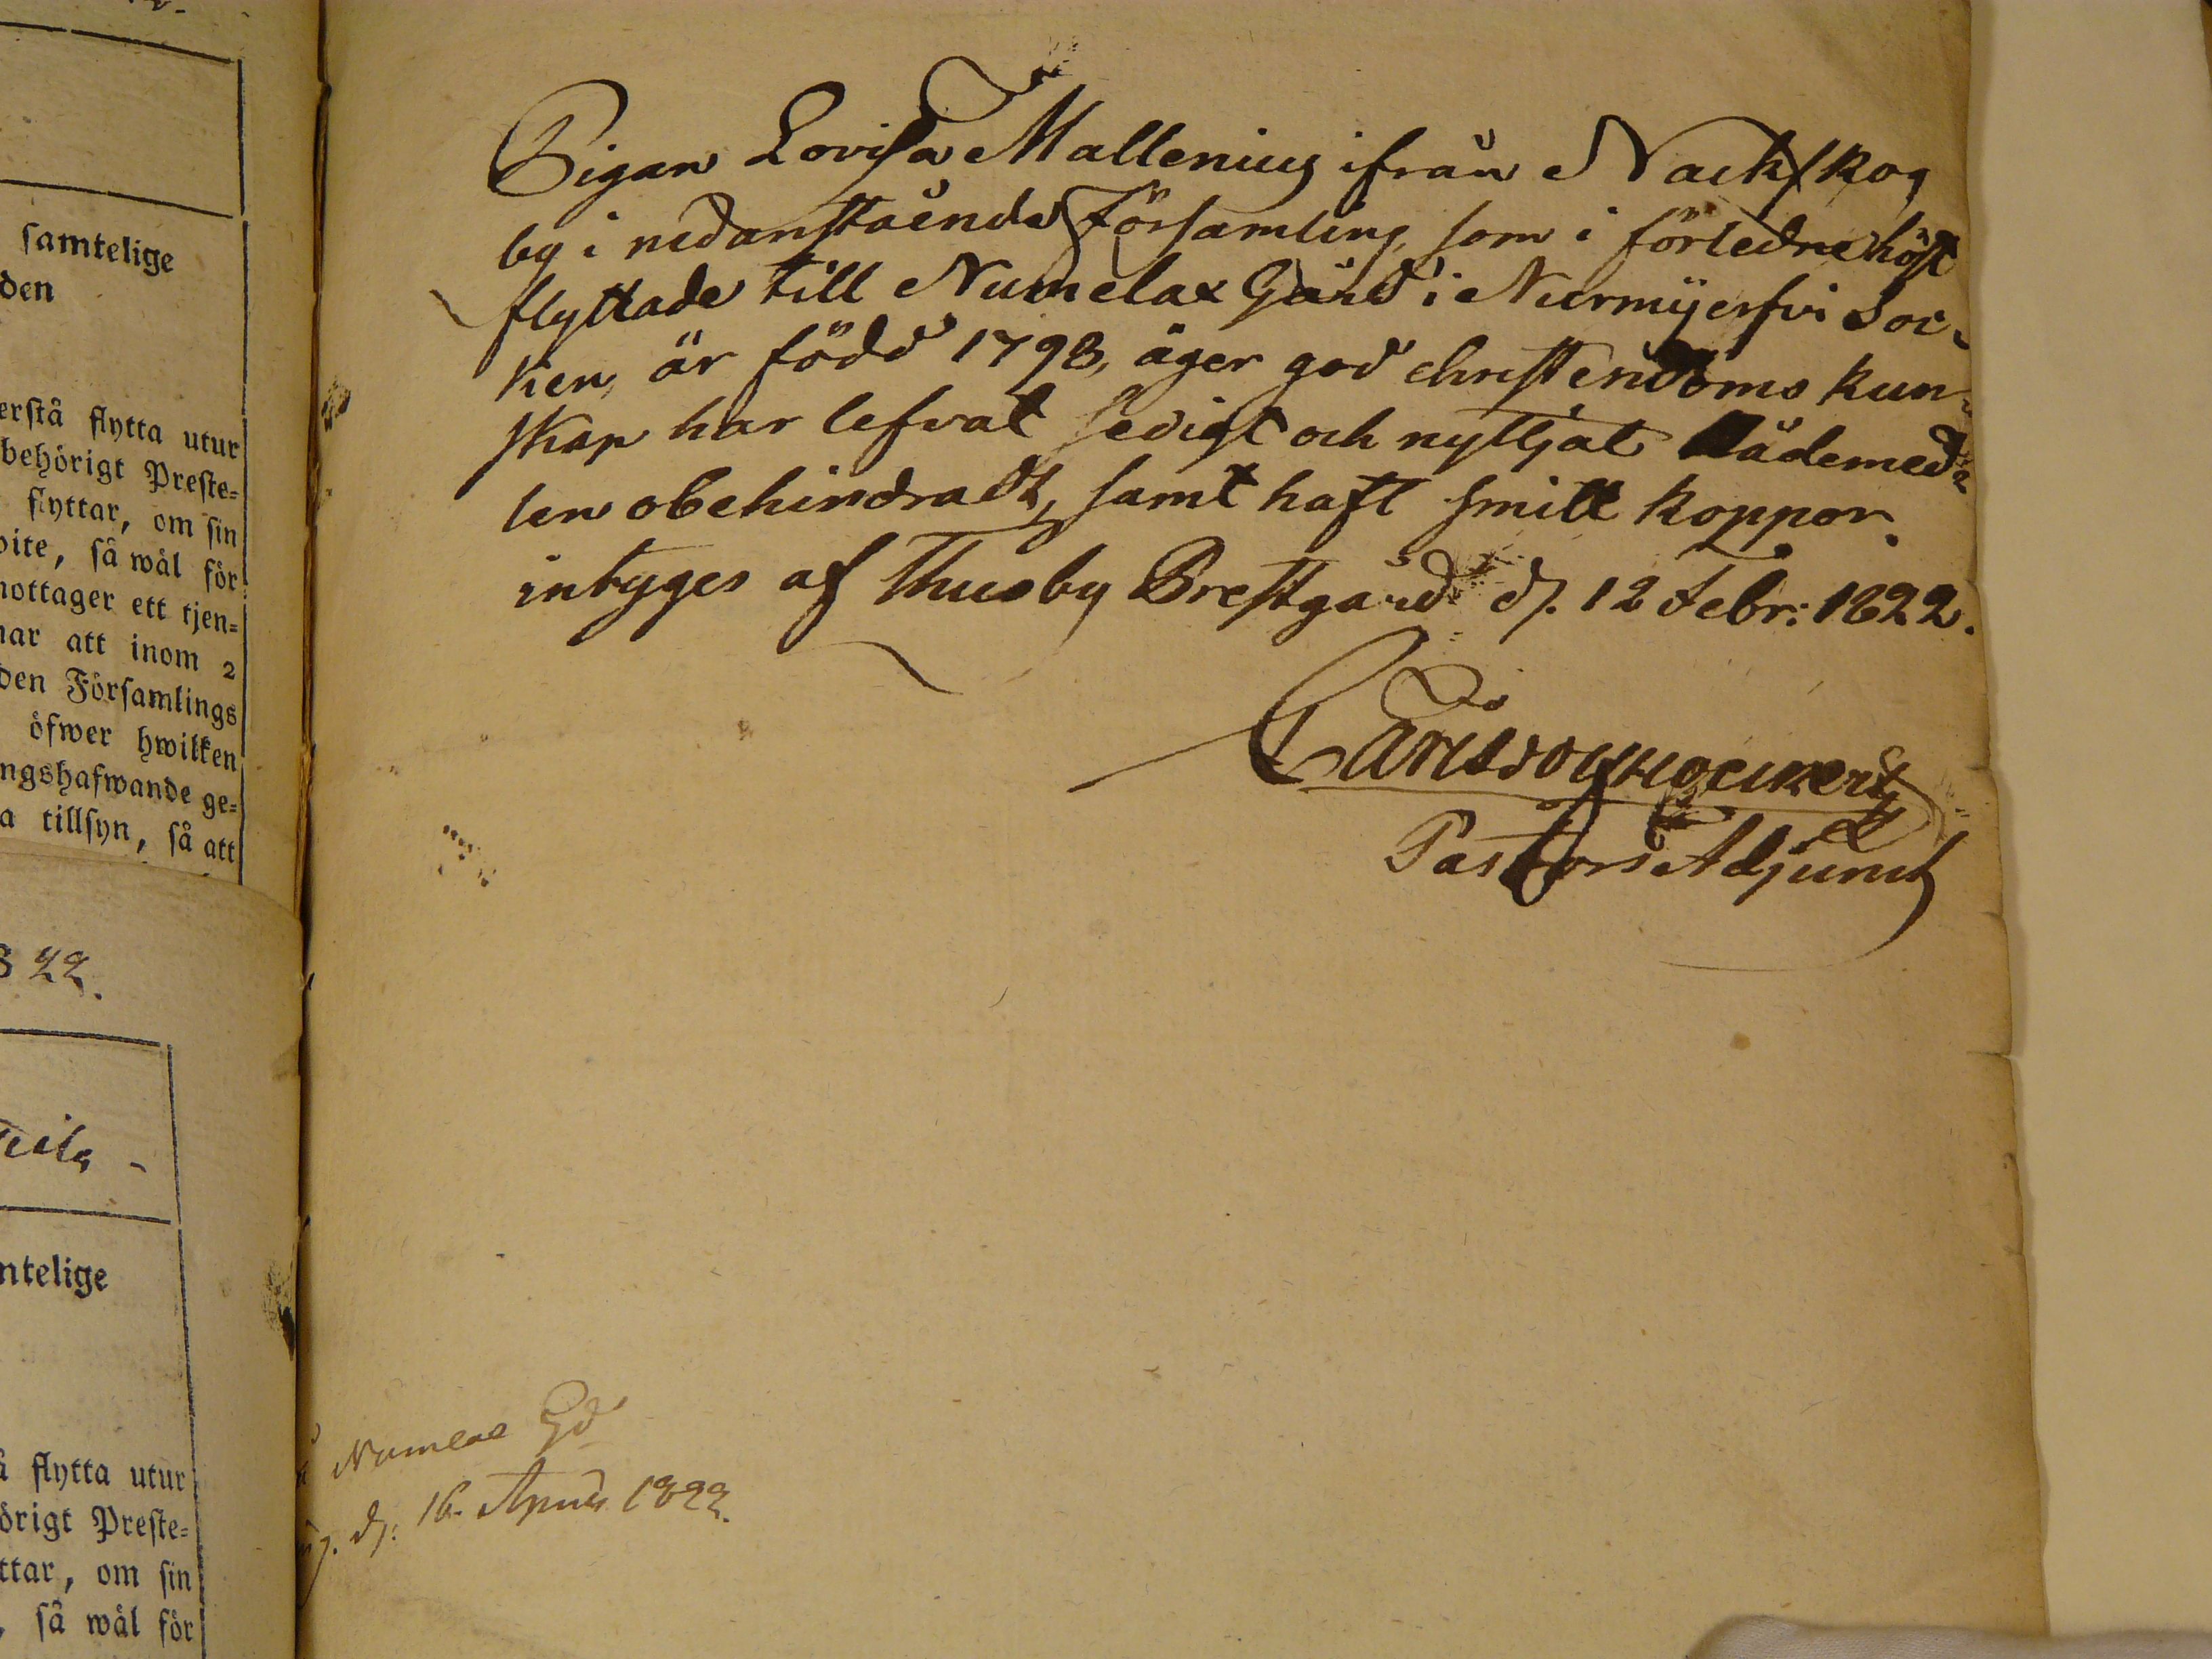 samtelige
den
erstå flytta utur
behörigt Preste=
flyttar, om sin
oite, så wäl för
mottager ett tjen=
nar att inom 2
den Församlings
öfwer hwilken
ngshafwande ge=
a tillsyn, så att
22.
ntelige
å flytta utur
örigt Preste=
ttar, om sin
, så wäl för
Pigan Lovisa Mallenius ifrån Nackskog
by i nedanstående Församling, som i förledne höst
flyttade till Numelax Gård i Nurmijerfvi Soc=
ken, är född 1798, äger god christendoms kun=
skap har lefvat sedigt och nyttjat Nådemed=
len obehindradt, samt haft smitt koppor.
intyges af Thusby Prestgård d. 12 Febr: 1822.
Pastors Adjunct
Numlax Gd
d. 16 April 1822.